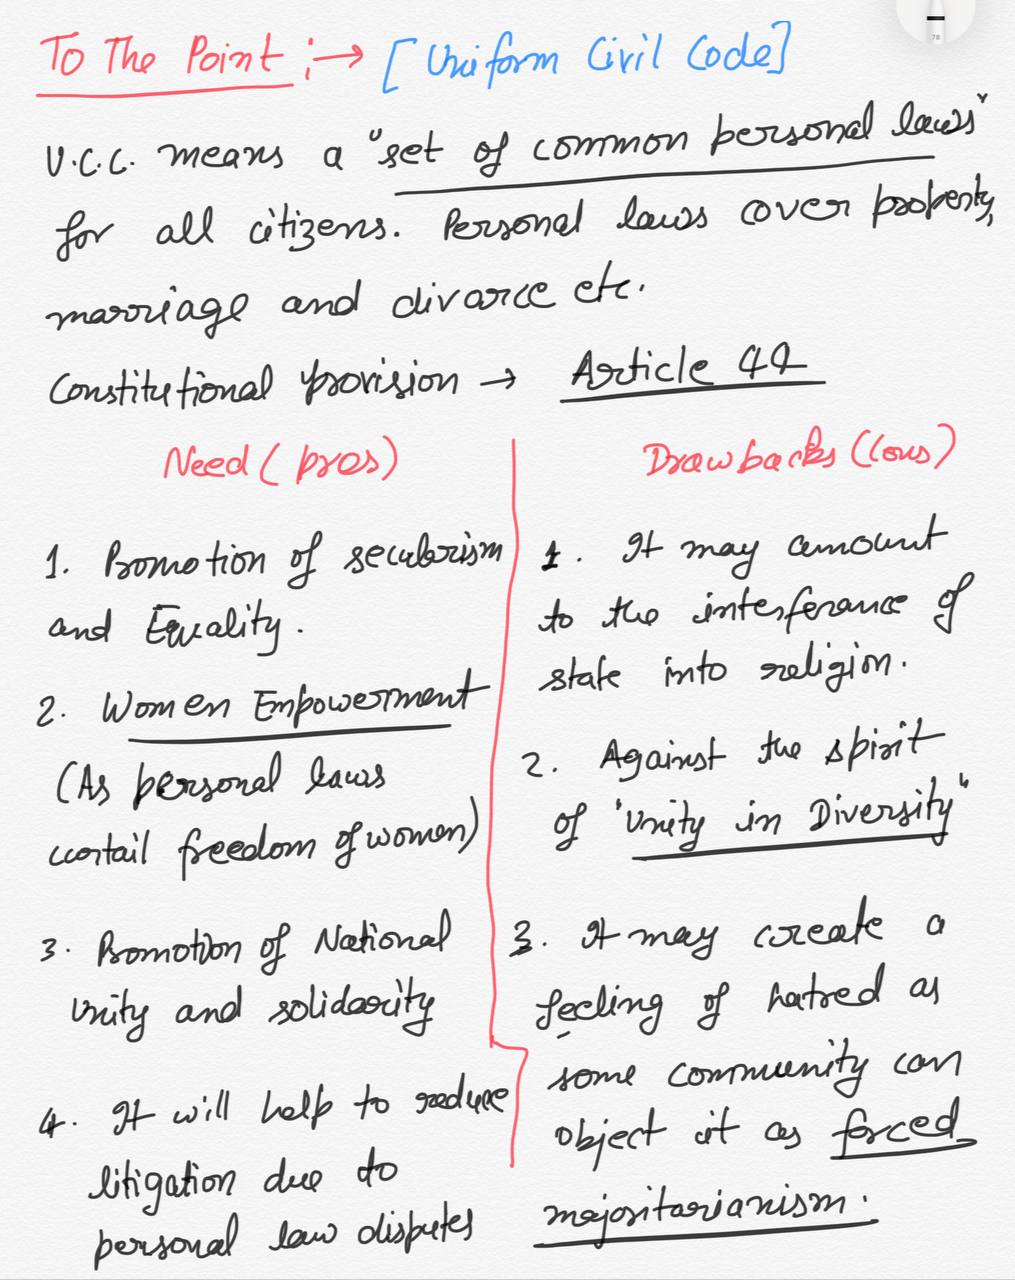 To The Point :→ [Uniform Civil Code]
U.C.C. means a "set of common personal laws"
for all citizens. Personal laws cover property,
marriage and divorce etc.
Constitutional provision → Article 44
Need (pros)
1. Promotion of secularism
and Equality.
2. Women Empowerment
(As personal laws
curtail freedom of women)
3. Promotion of National
Unity and solidarity
4. It will help to reduce
litigation due to
personal law disputes
Drawbacks (Cons)
1. It may amount
to the interferance of
state into religion.
2. Against the spirit
of "Unity in Diversity"
3. It may create a
feeling of hatred as
some community can
object it as forced
majoritarianism.
78